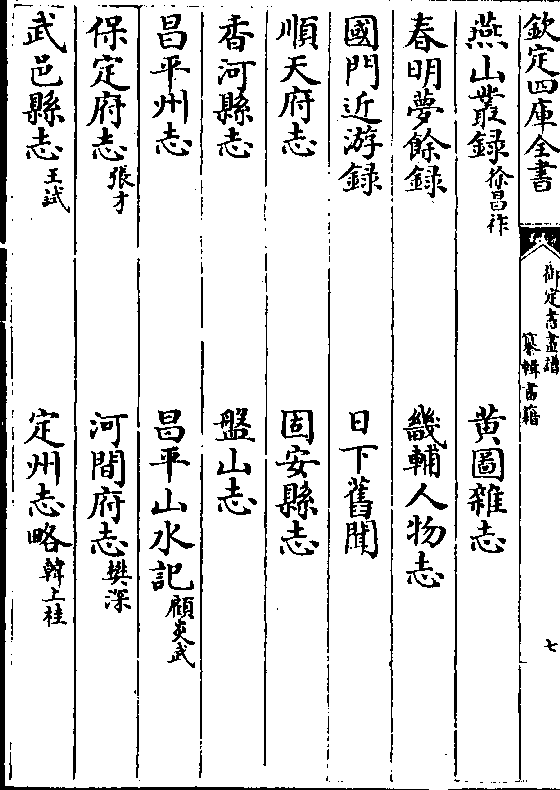 欽定四庫全書
御定書畫譜
纂輯書籍
七
燕山叢録徐昌祚
黄圖雜志
春明夢餘録
畿輔人物志
國門近游録
日下舊聞
順天府志
固安縣志
香河縣志
盤山志
昌平州志
昌平山水記顧炎武
保定府志張才
河間府志樊深
武邑縣志王試
定州志略韓上桂